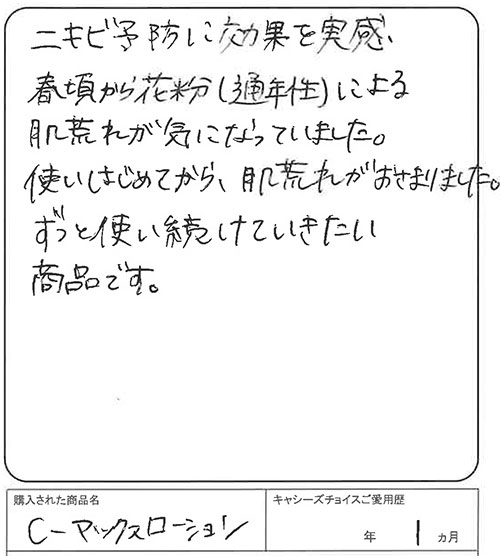 ニキビ予防に効果を実感、
春頃から花粉(通年性)による
肌荒れが気になっていました。
使いはじめてから、肌荒れがおさまりました。
ずっと使い続けていきたい
商品です。
購入された商品名
キャシーズチョイスご愛用歴
C-マックスローション
年 1 ヵ月